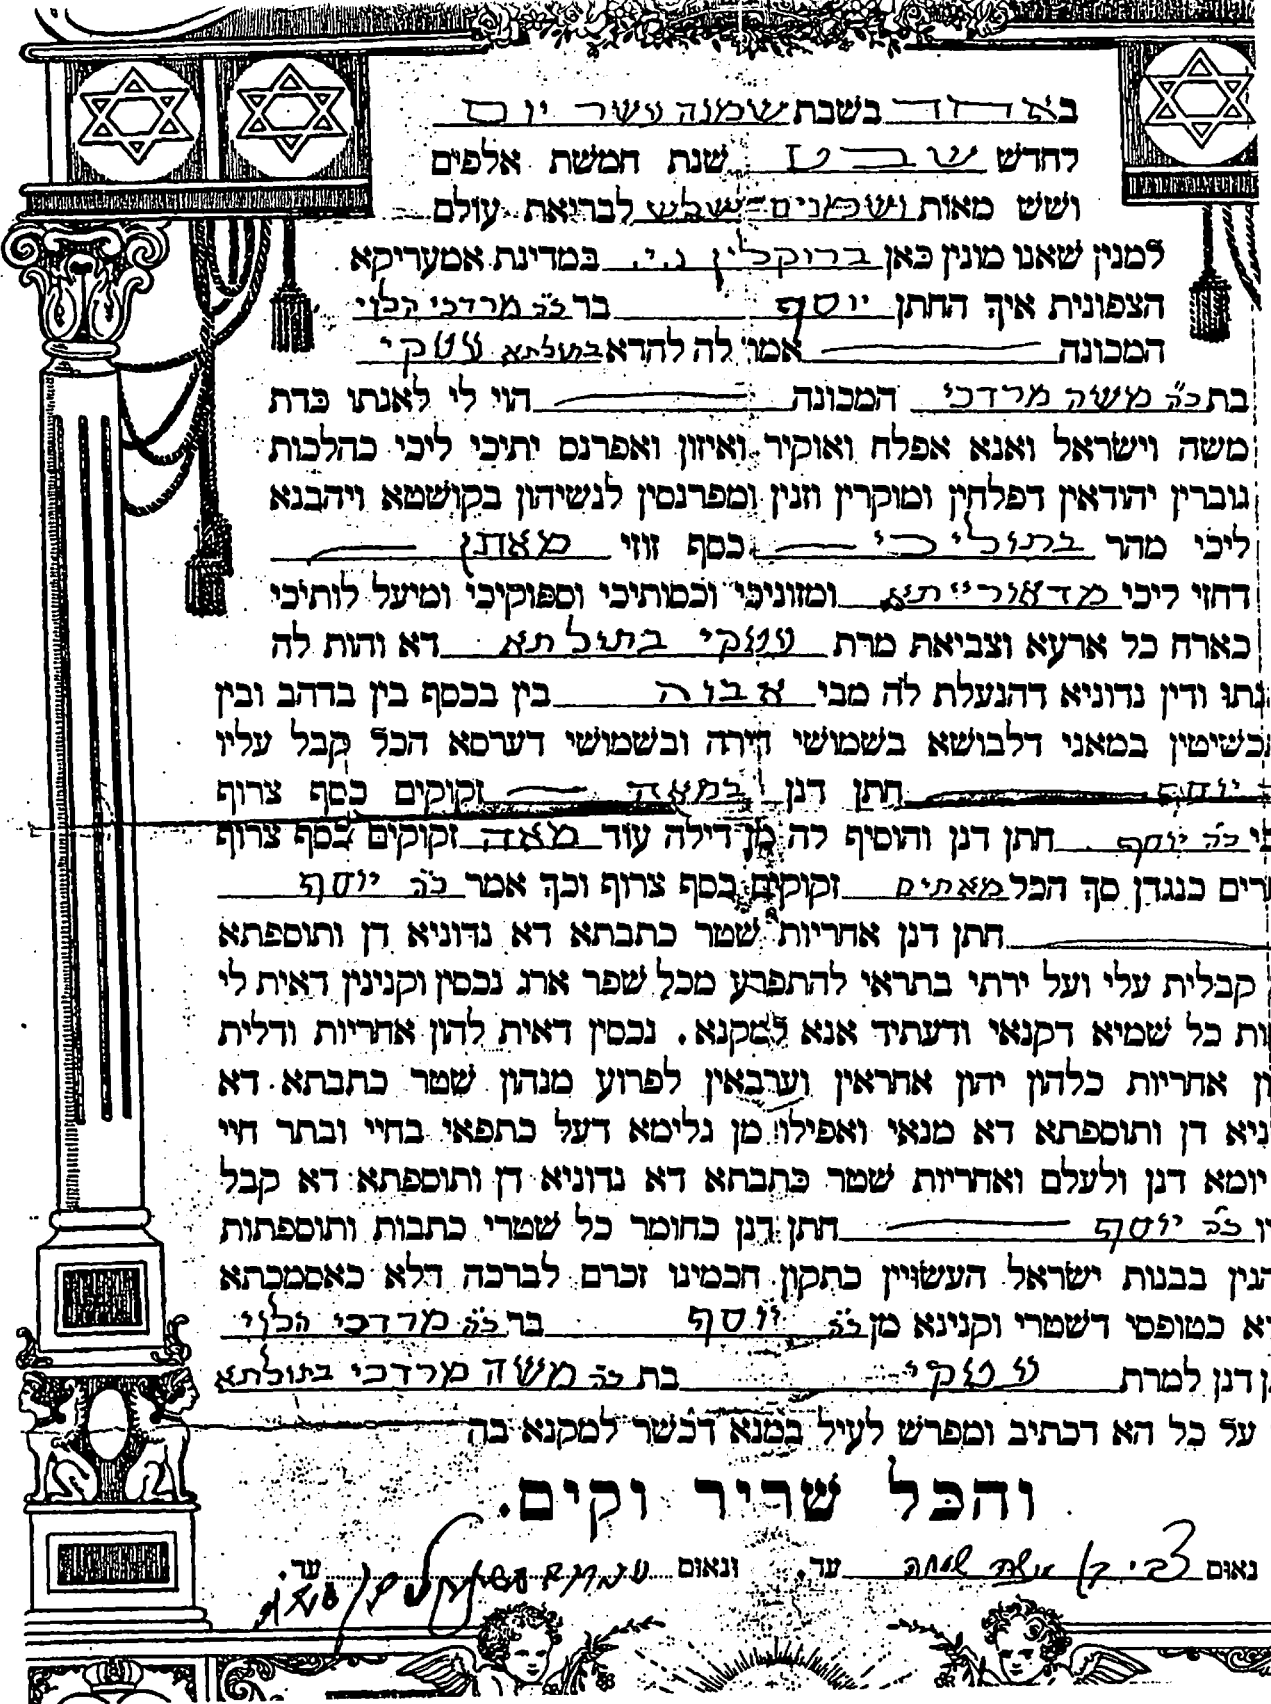 באחד בשבת שמנה עשר יום
לחדש שבט שנת חמשת אלפים
ושש מאות ושמנים ושלש לבריאת עולם
למנין שאנו מונין כאן ברוקלין נ.י. במדינת אמעריקא
הצפונית איך החתן יוסף בר כ״ה מרדכי הלוי
המכונה אמר לה להדא בתולתא עטקי
בת כ״ה משה מרדכי המכונה הוי לי לאנתו כדת
משה וישראל ואנא אפלח ואוקיר ואיזון ואפרנס יתיכי ליכי כהלכות
גוברין יהודאין דפלחין ומוקרין וזנין ומפרנסין לנשיהון בקושטא ויהבנא
ליכי מהר בתוליכי כסף זוזי מאתן
דחזי ליכי מדאורייתא ומזוניכי וכסותיכי וספוקיכי ומיעל לותיכי
כארח כל ארעא וצביאת מרת עטקי בתולתא דא והות לה
נתו ודין נדוניא דהנעלת לה מבי אבוה בין בכסף בין בדהב ובין
כשיטין במאני דלבושא בשמושי דירה ובשמושי דערסא הכל קבל עליו
יוסף חתן דנן במאה זקוקים כסף צרוף
כ״ה יוסף חתן דנן והוסיף לה מן דילה עוד מאה זקוקים כסף צרוף
רים כנגדן סך הכל מאתים זקוקים כסף צרוף וכך אמר כ״ה יוסף
חתן דנן אחריות שטר כתבתא דא נדוניא דן ותוספתא
קבלית עלי ועל ירתי בתראי להתפרע מכל שפר ארג נכסין וקנינין דאית לי
ות כל שמיא דקנאי ודעתיד אנא למקנא. נכסין דאית להון אחריות ודלית
ון אחריות כלהון יהון אחראין וערבאין לפרוע מנהון שטר כתבתא דא
ניא דן ותוספתא דא מנאי ואפילו מן גלימא דעל כתפאי בחיי ובתר חיי
יומא דנן ולעלם ואחריות שטר כתבתא דא נדוניא דן ותוספתא דא קבל
יו כ״ה יוסף חתן דנן כחומר כל שטרי כתבות ותוספתות
הגין בבנות ישראל העשויין כתקון חכמינו זכרם לברכה דלא כאסמכתא
א כטופסי דשטרי וקנינא מן כ״ה יוסף בר כ״ה מרדכי הלוי
ן דנן למרת עטקי בת כ״ה משה מרדכי בתולתא
על כל הא דכתיב ומפרש לעיל במנא דכשר למקנא בה
והכל שריר וקים.
נאום צבי בן משה שמחה עד. ונאום עד.